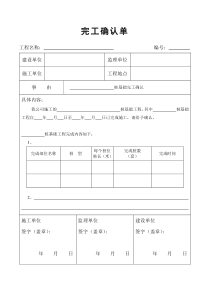 完工确认单
工程名称： 编号：
建设单位 监理单位
施工单位 工程地点
事 由 桩基础完工确认
具体内容：
我公司施工的 桩基础工程，其中 桩基础
工程自 年 月 日至 年 月 日已完成施工，请给予确认。
桩基础工程完成内容如下：
1、
完成部位名称 桩 型 每个桩位桩长（米） 完成桩数（套） 完成时间
2、
施工单位 监理单位 建设单位
签字（盖章）： 签字（盖章）： 签字（盖章）：
年 月 日 年 月 日 年 月 日